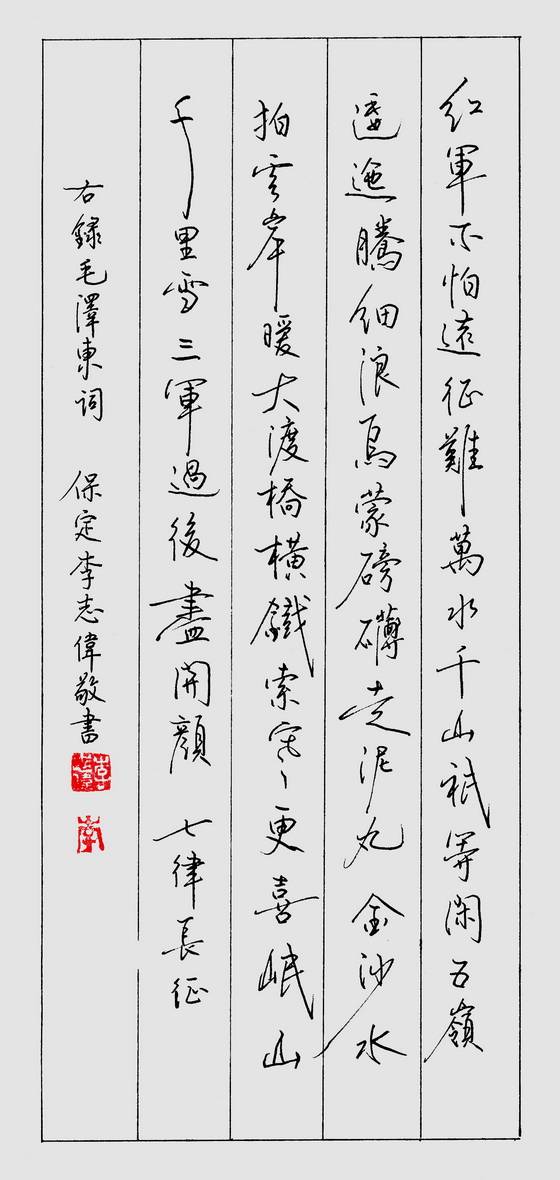 紅軍不怕遠征難萬水千山祇等閑五嶺
逶迤騰細浪烏蒙磅礴走泥丸金沙水
拍雲岸暖大渡橋橫鐵索寒更喜岷山
千里雪三軍過後盡開顏 七律長征
右錄毛澤東詞 保定李志偉敬書
李